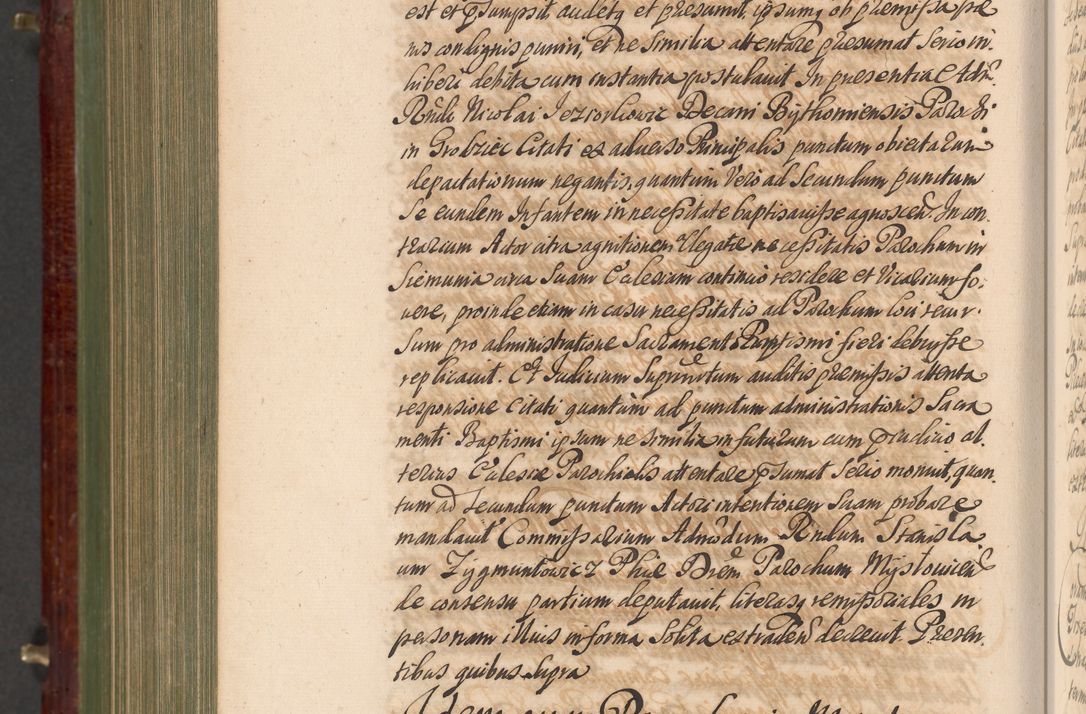 est et præsumpsit audetq et præsumit, ipsumq ob præmissa pæ
nis condignis puniri, et ne Similia attentare præsumat Serio in,
hiberi debita cum instantia postulauit. In præsentia Adm̃
Rñdi Nicolai Jeziorkowic Decani Bythomiensis Parochi
in Grobziec Citati et aduerso Principalis punctum obiectarum
depactationum negantis, quantum Vero ad Secundum punctum
Se eundem Infantem in necessitate baptisauisse agnoscen̄. In con,
trarium Actor citra agnitionem allegatæ necessitatis Parochum in
Siemunia circa Suam Ecclesiam continuo residere et Vicarium fo,
uere, proinde etiam in casu necessitatis ad Parochum loci recur,
Sum pro administratione Sacramenti Baptismi fieri debuisse
replicauit. Et Iudicium Suprãtum auditis præmissis attenta
responsione Citati quantum ad punctum administrationis Sacra
menti Baptismi ipsum ne similia in futurum cum præiudicio al,
terius Ecclesiæ Parochialis attentare præsumat Serio monuit, quan,
tum ad Secundum punctum Actori intentionem Suam probare
mandauit Commissarium Admodum Rñdum Stanisla
um Zygmuntowicz Phiæ Drem Parochum Mystouicen̄
de consensu partium deputauit, literasq remissoriales in
personam illius in forma Solita extraden̄ decreuit. Præsen,
tibus quibus Supra